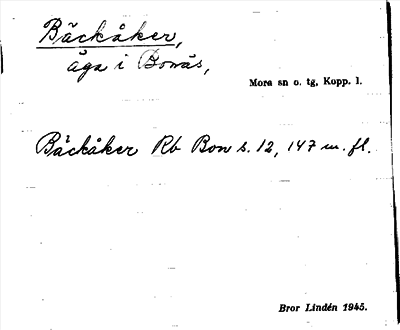 Bäckåker,
äga i Bonäs,
Mora sn o. tg, Kopp. l.
Bäckåker Rb Bon s. 12, 147 m. fl.
Bror Lindén 1945.